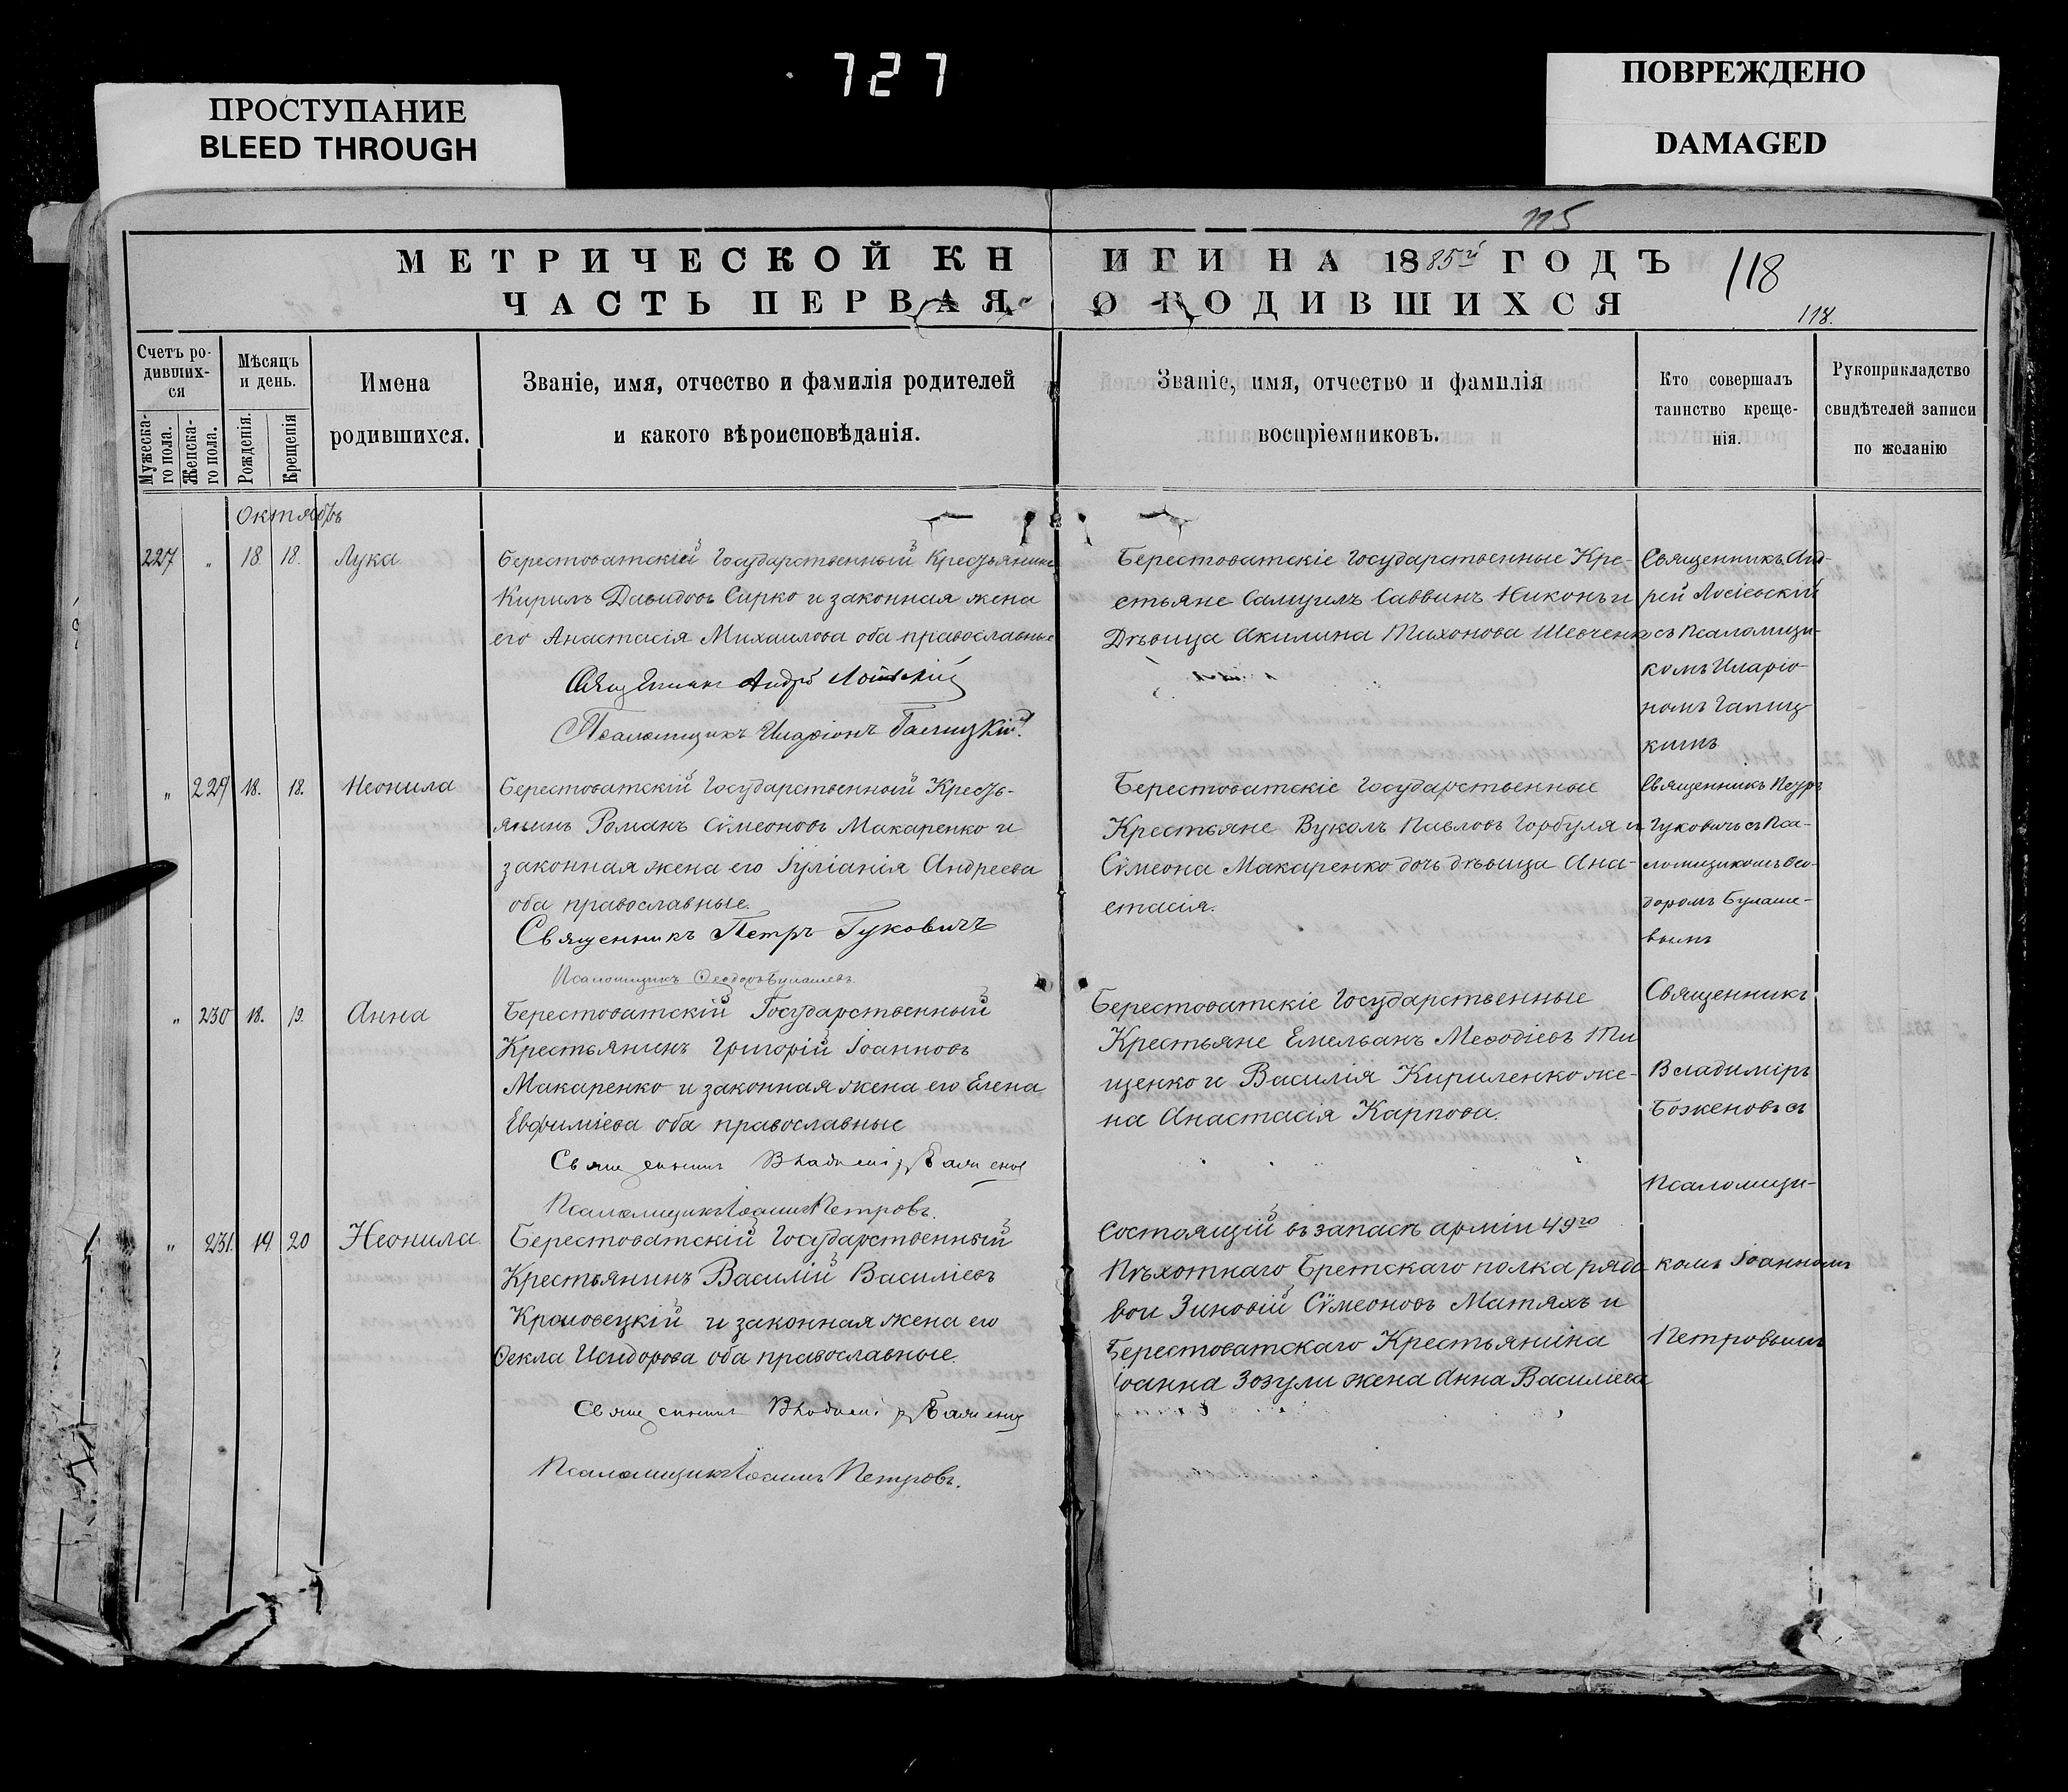 727
ПРОСТУПАНИЕ
BLEED THROUGH
ПОВРЕЖДЕНО
DAMAGED
115
МЕТРИЧЕСКОЙ КНИГИ НА 1885й ГОДЪ
118
ЧАСТЬ ПЕРВАЯ О РОДИВШИХСЯ
118.
Счетъ ро-
дивших-
ся
Мужеска-
го пола.
Женска-
го пола.
Мѣсяцъ
и день.
Рожденія.
Крещенія
Имена
родившихся.
Званіе, имя, отчество и фамилія родителей
и какого вѣроисповѣданія.
Званіе, имя, отчество и фамилія
воспріемниковъ.
Кто совершалъ
таинство креще-
нія.
Рукоприкладство
свидѣтелей записи
по желанію
Октябрь
227 " 18 18. Лука
Берестоватскій Государственный Крестьянинъ
Кирилъ Давидовъ Сирко и законная жена
его Анастасія Михаилова оба православные
Священникъ Андрей Лосіевскій
Псаломщикъ Иларіонъ Галицкій.
Берестоватскіе Государственные Кре-
стьяне Самуилъ Саввинъ Никонъ и
Дѣвица Акилина Тихонова Шевченк
Священникъ Анд-
рей Лосіевскій
съ Псаломщи-
комъ Иларіо-
номъ Галиц-
кимъ
" 229 18. 18. Неонила
Берестоватскій Государственный Кресть-
янинъ Романъ Сѵмеоновъ Макаренко и
законная жена его Іуліанія Андреева
оба православные.
Священникъ Петръ Гуковичъ
Псаломщикъ Ѳеодоръ Булашевъ.
Берестоватскіе Государственные
Крестьяне Вуколъ Павловъ Горбуля и
Сѵмеона Макаренко дочь дѣвица Ана-
стасія.
Священникъ Петръ
Гуковичъ съ Пса-
ломщикомъ Ѳео-
доромъ Булаше-
вымъ
" 230 18. 19. Анна
Берестоватскій Государственный
Крестьянинъ Григорій Іоанновъ
Макаренко и законная жена его Елена
Евфиміева оба православные
Священникъ Владиміръ Боженов
Псаломщикъ Іоаннъ Петровъ.
Берестоватскіе Государственные
Крестьяне Емельянъ Меѳодіевъ Ти
щенко и Василія Кириленко же-
на Анастасія Карпова.
Священникъ
Владиміръ
Боженовъ съ
Псаломщи-
комъ Іоанномъ
Петровымъ
" 231. 19 20 Неонила
Берестоватскій Государственный
Крестьянинъ Василій Василіевъ
Кроловецкій и законная жена его
Ѳекла Исидорова оба православные.
Священникъ Владиміръ Боженов
Псаломщикъ Іоаннъ Петровъ.
Состоящій въ запасѣ арміи 49го
Пѣхотнаго Бретскаго полка рядо
вои Зиновій Сѵмеоновъ Матяхъ и
Берестоватскаго Крестьянина
Іоанна Зозули жена Анна Василіева